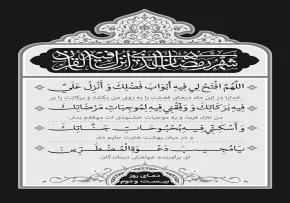 شهر رمضان الذی انزل فیه القرآن
اَللّهُمَّ افْتَحْ لِي فِيهِ أَبْوَابَ فَضْلِكَ وَ أَنْزِلْ عَلَيَّ
خدایا در این ماه درهای فضلت را به روی من بگشا، و برکاتت را بر
فِيهِ بَرَكَاتِكَ وَ وَفِّقْنِي فِيهِ لِمُوجِبَاتِ مَرْضَاتِكَ
من نازل فرما، و به موجبات خشنودی ات موفقم بدار،
وَ أَسْكِنِّي فِيهِ بُحْبُوحَاتِ جَنَّاتِكَ
و در میان بهشت هایت جایم ده،
يَا مُجِيبَ دَعْوَةِ الْمُضْطَرِّينَ
ای برآورنده خواهش درماندگان.
دعای روز
بیست و دوم